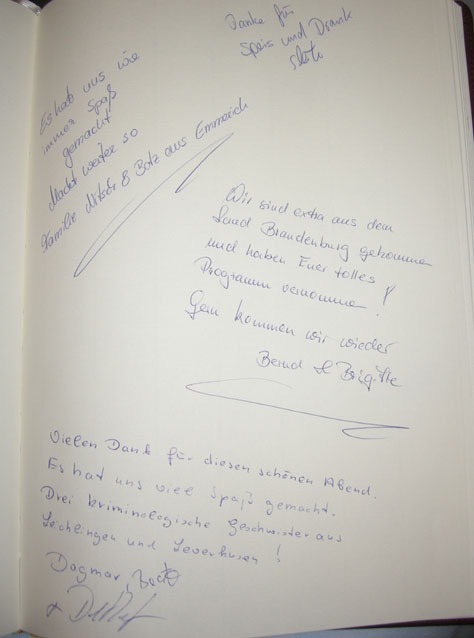 Danke für
Speis und Drank
Es hat uns wie
immer Spaß
gemacht
Macht weiter so
Familie & Botz aus Emmerich
Wir sind extra aus dem
Land Brandenburg gekommen
und haben Euer tolles
Programm vernommen!
Gern kommen wir wieder
Bernd & Brigitte
Vielen Dank für diesen schönen Abend.
Es hat uns viel Spaß gemacht.
Drei kriminologische Geschwister aus
Leichlingen und Leverkusen!
Dagmar,